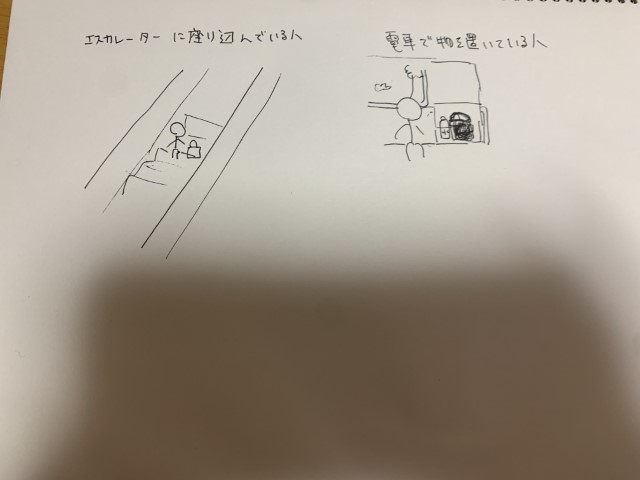 エスカレーターに座り込んでいる人
電車で物を置いている人